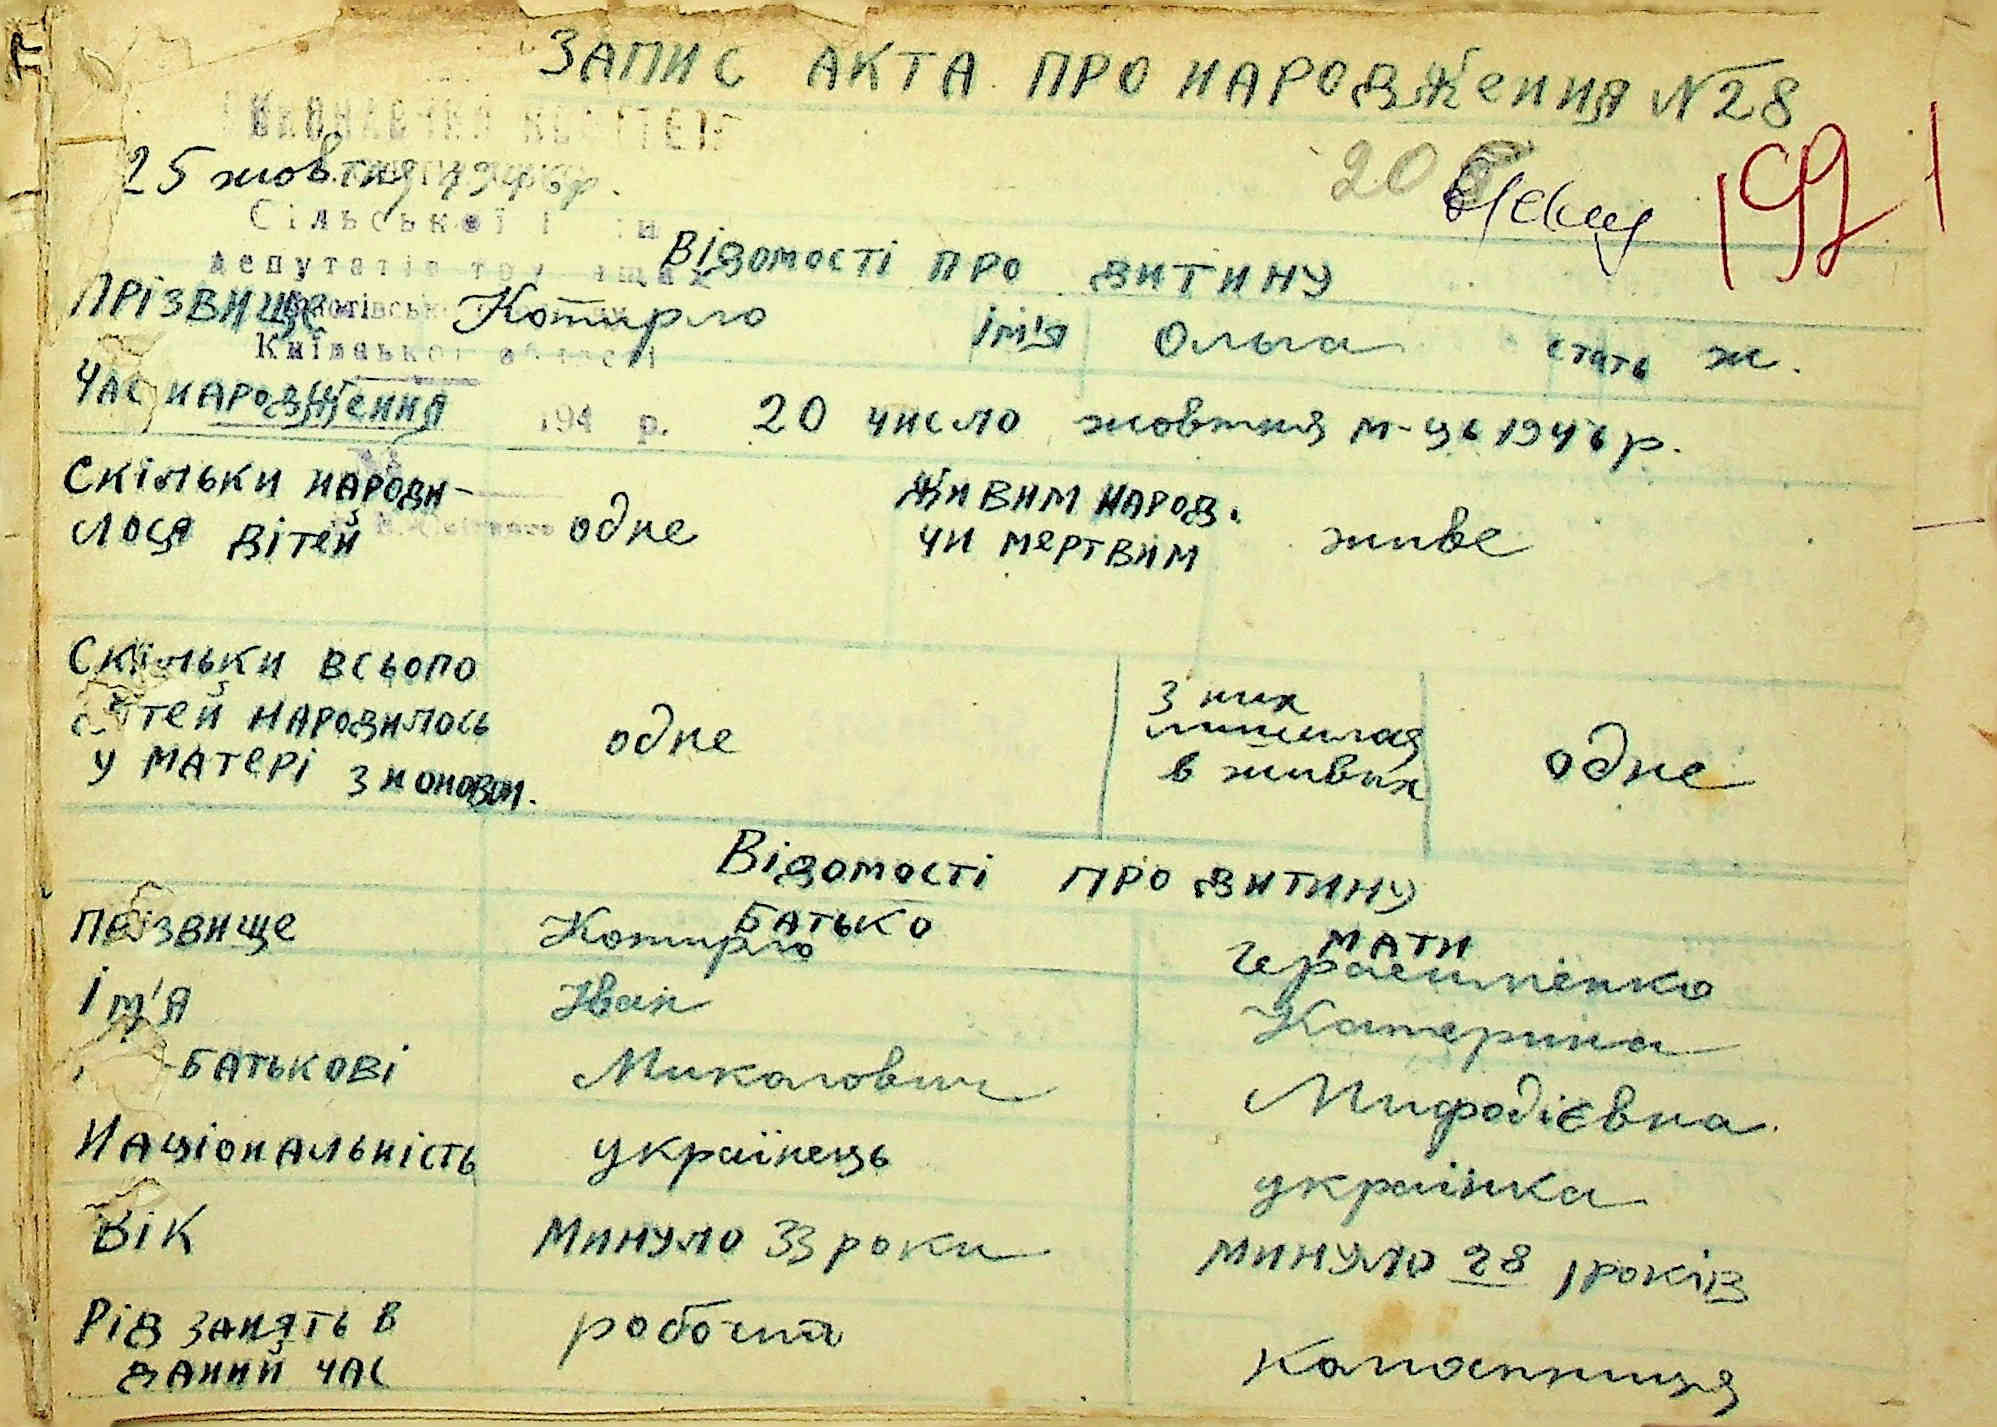 ЗАПИС АКТА ПРО НАРОДЖЕННЯ №28
Виконавчий комітет
25 жовтня 1946 р.
20
192
Сільської
депутатів
Відомості про дитину
Прізвище Котирло ім'я Ольга стать ж.
Київської області
Час народження 194 р. 20 число жовтня м-ць 1946 р.
Скільки народи- одне Живим народ. живе
лося дітей чи мертвим
Скільки всього з них
дітей народилось одне лишилася одне
у матері з новонар. в живых
Відомості про дитину
Батько Мати
Прізвище Котирло Герасименко
Ім'я Іван Катерина
-батькові Миколович Мифодієвна
Національність українець українка
Вік минуло 33 роки минуло 28 років
Рід занять в робочий колгоспниця
даний час